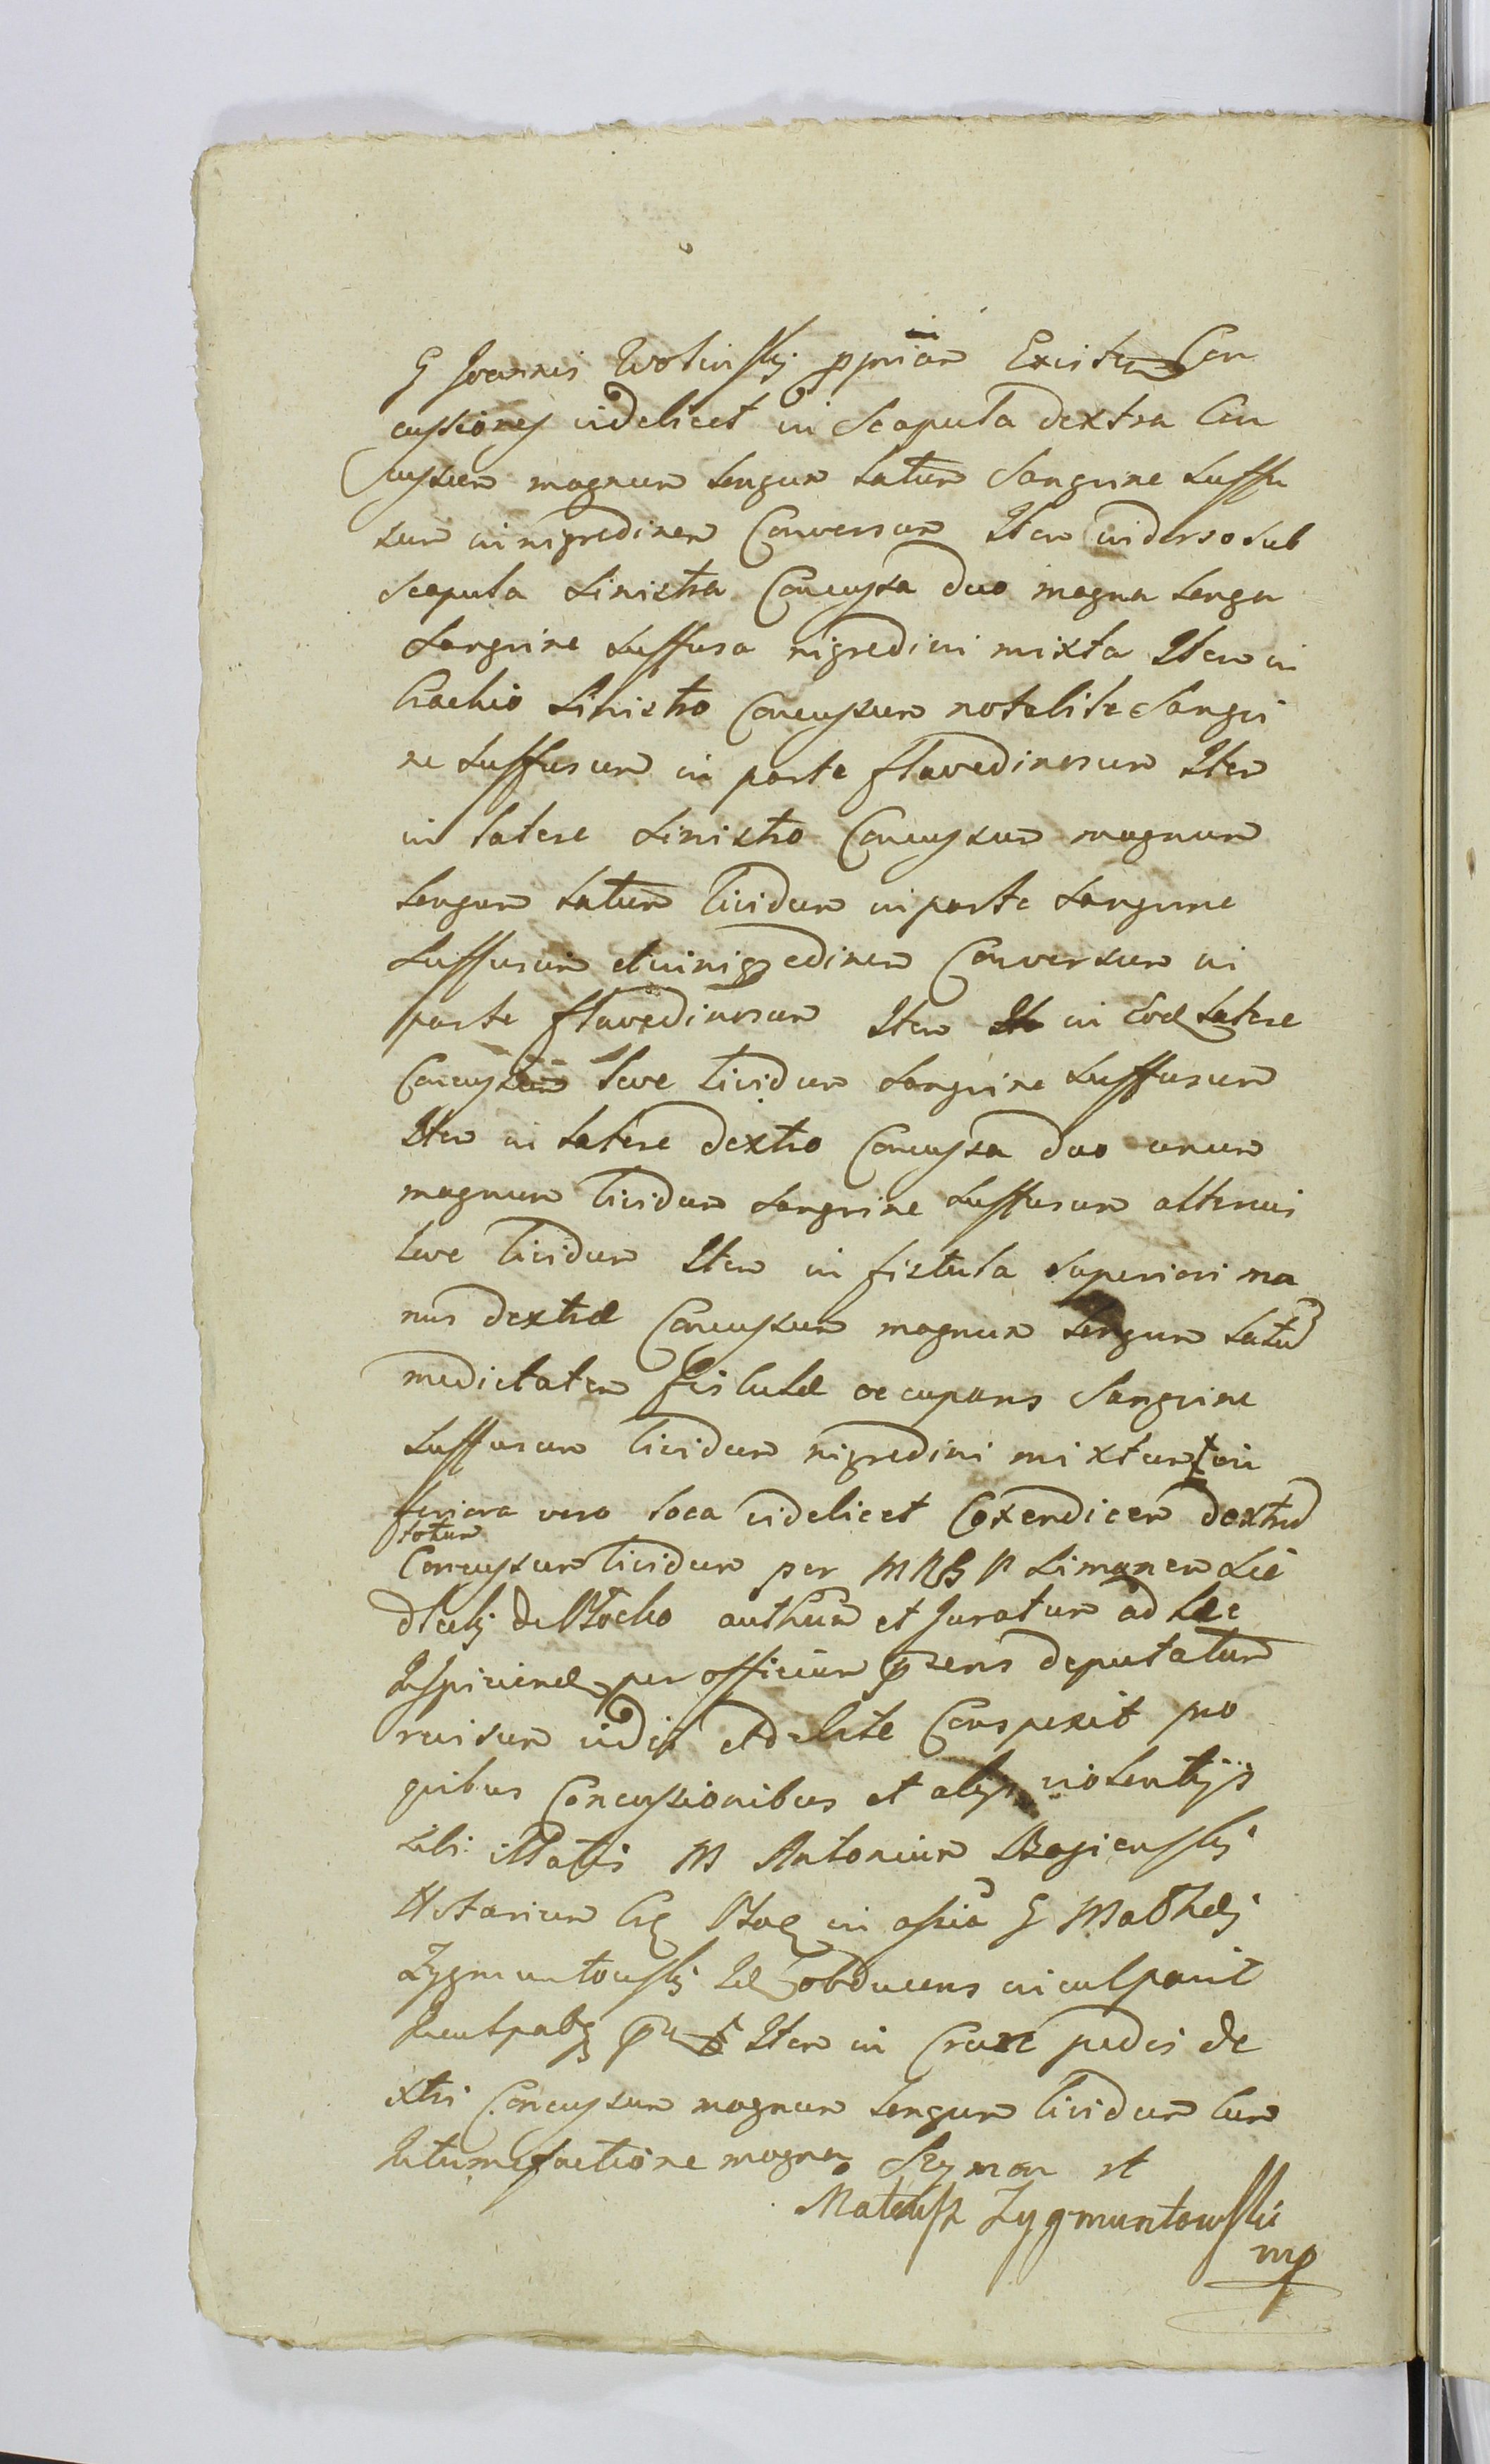 G Joannis Wolinskj ppriam Existen Con
cussiones videlicet in Scapula dextra Con
cussum magnum longum latum Sanguine suffu
sum in nigredinem Conversum Item in dorso sub
Scapula sinistra Concussa duo magna longa
Sanguine suffusa nigredini mixta Item in
brachio sinistro Concussum notabilite Sangvi
ne suffusum in parte flavedinosum Item
in latere sinistro Concussum magnum
longum latum lividum in parte sanguine
suffusum et in nigredinem Conversum in
parte flavedinosum Item in Eod latere
Concussum leve lividum sangvine suffusum
Item in latere dextro Concussa duo unum
magnum lividum sangvine suffusum alterum
leve lividum Item in fistula superiori ma
nus dextræ Concussum magnum longum latu
medietatem fistulæ occupans Sangvine
suffusum lividum nigredini mixtum in
feriora vero loca videlicet Coxendicem dextra
totum
Concussum lividum per M Simonem Sie
dleckj de Plocko authum et Juratum ad hæc
Inspiciend per officium pzens deputatum
ruisum vidit et Conspexit pro
quibus Concussionibus et alijs violentijs
sibi illatis M Antonium
Notarium in G Mathej
Zygmuntowskj obducens inculpavit
Inculpatq Item in Crure pedis de
xtri Concussum magnum longum lividum cum
Intumefactione magna Szymon et
Mateusz Zygmuntowski
mp